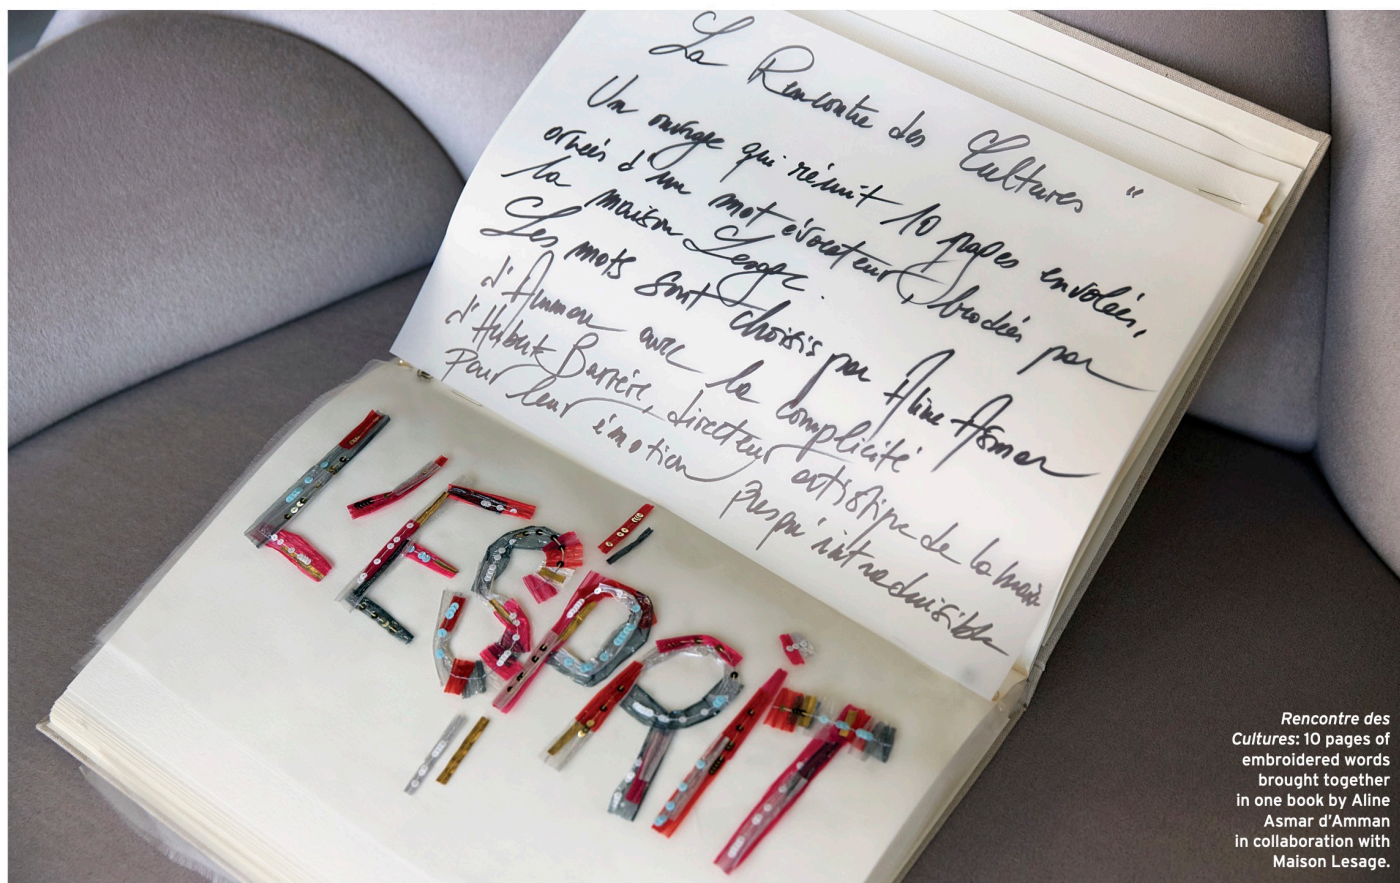 La Rencontre des Cultures "
Un ouvrage qui réunit 10 pages envolées,
ornées d'un mot évocateur, brodées par
la maison Lesage.
Les mots sont choisis par Aline Asmar
d'Amman avec la complicité
d'Hubert Barrère, directeur artistique de la maison
Pour leur émotion presqu'intraduisible
L'ESPRiT
Rencontre des
Cultures: 10 pages of
embroidered words
brought together
in one book by Aline
Asmar d'Amman
in collaboration with
Maison Lesage.